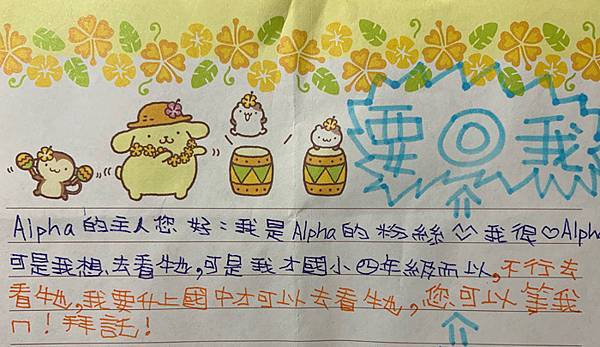 要回我
Alpha的主人您好：我是Alpha的粉絲我很♡Alpha
可是我想去看牠，可是我才國小四年級而以，不行去
看牠，我要什上國中才可以去看牠，您可以等我
ㄇ！拜託！